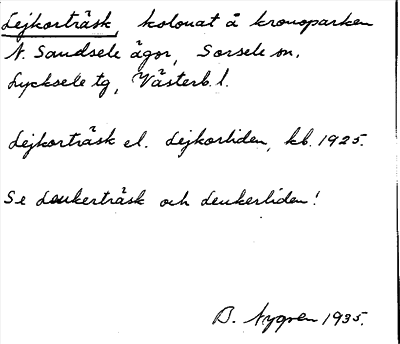 Lejkorträsk, kolonat å kronoparken
N. Sandsele ägor, Sorsele sn.
Lycksele tg, Västerb. l.
Lejkorträsk el. Lejkorliden, kb. 1925.
Se Leukerträsk och Leukerliden!
B. Nygren 1935.